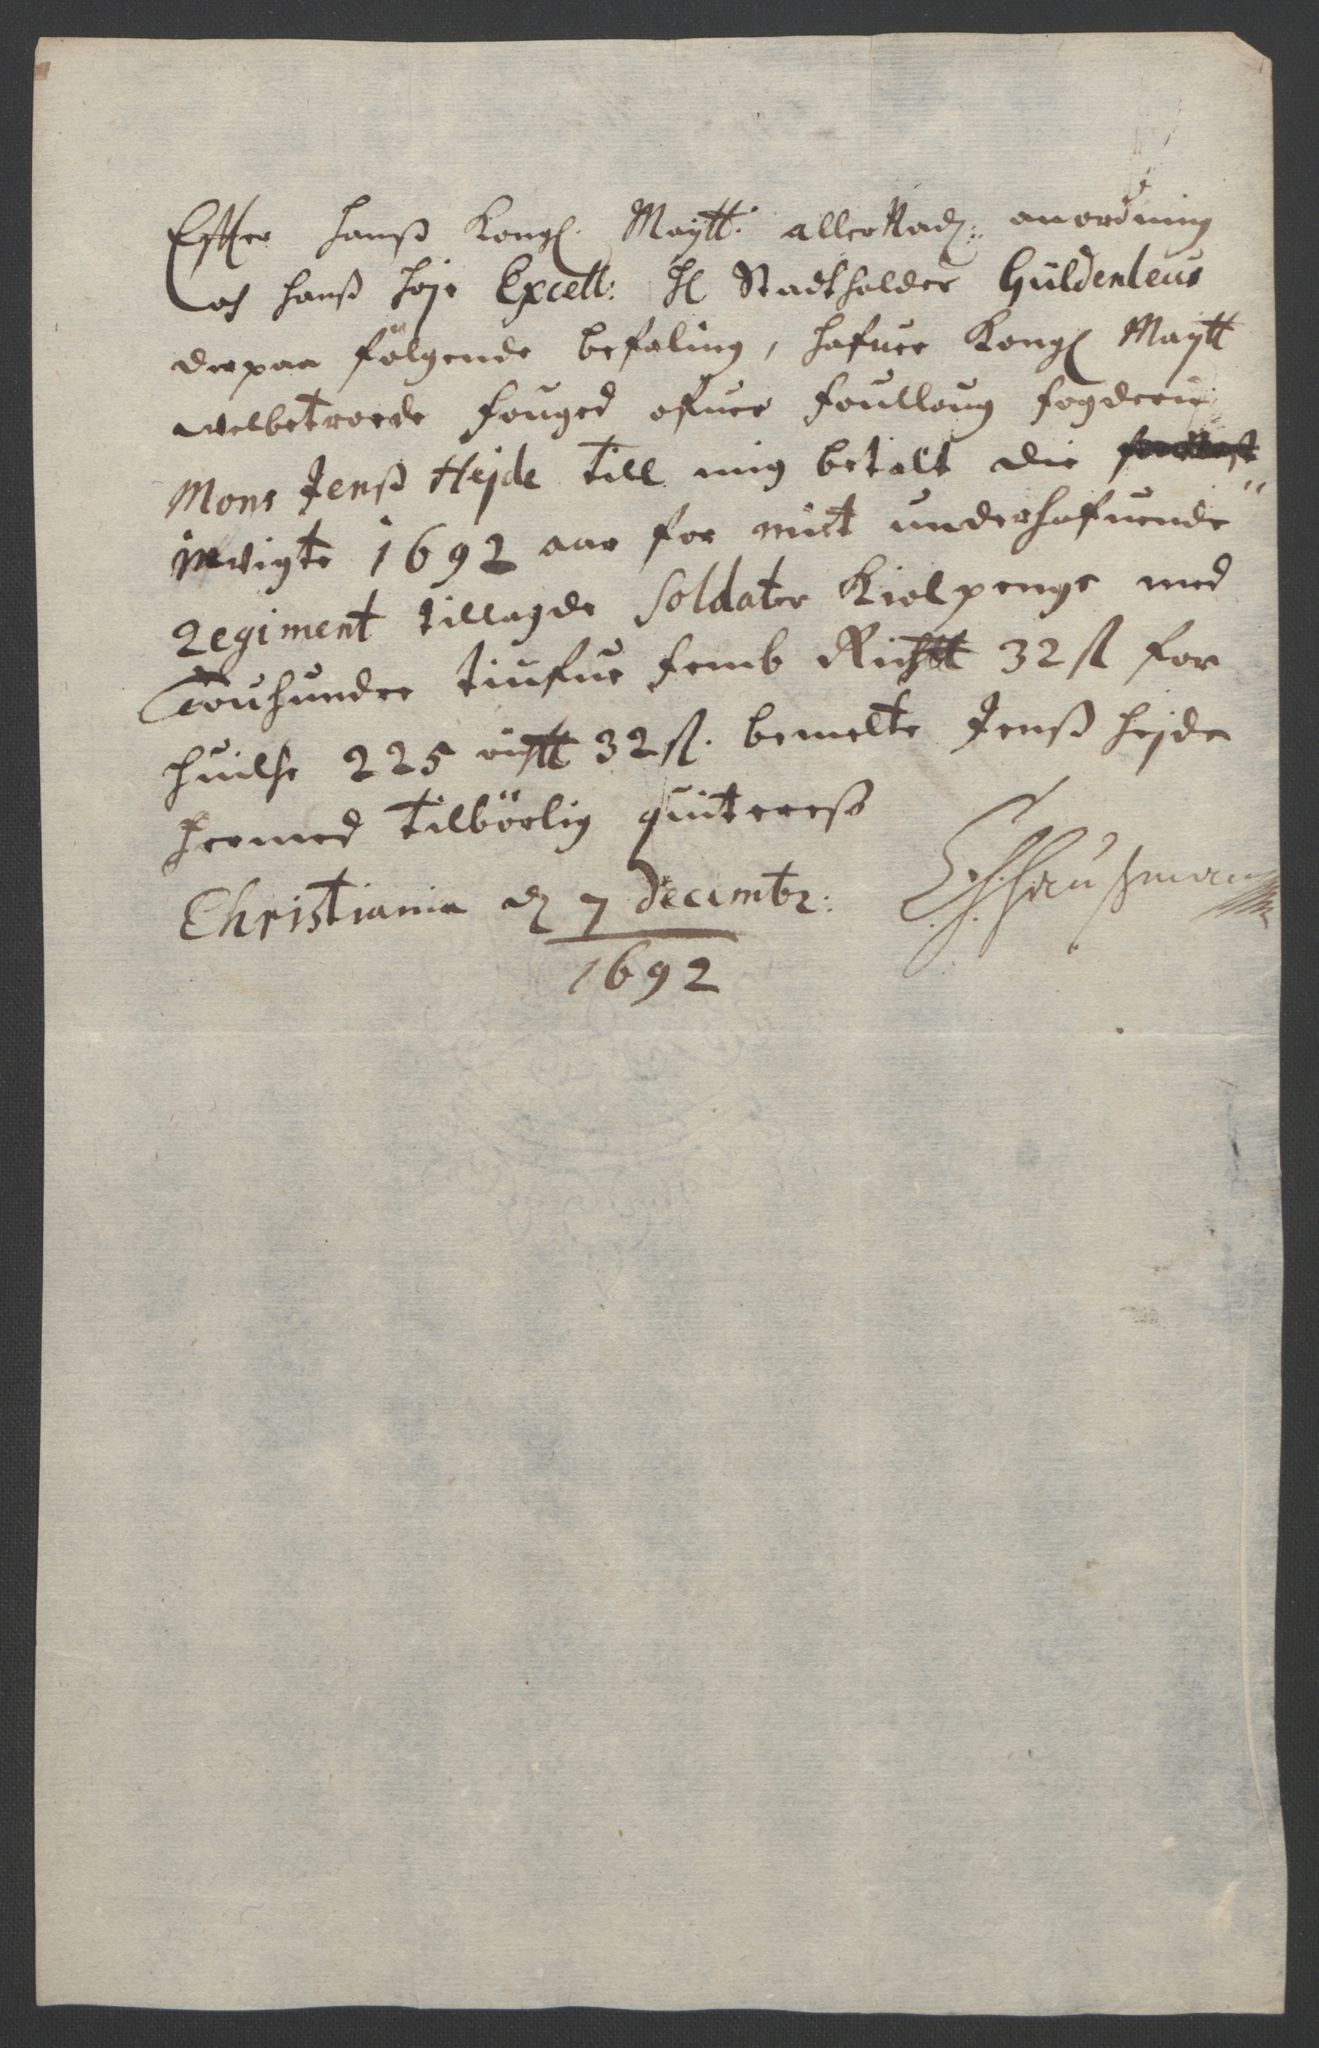 Effter hanß Kongl. Maytt: aller Naad: anordning
och hanß höje Excell: Hl Stadtholder Güldenleus
derpaa fölgende befaling, hafuer Kongl Maytt
welbetroede fouged ofuer foulloug fogderie
Mons Jenß Hejde till mig betalt die
inwigte 1692 aar for mit underhafuende
Regiment tillagde Soldater Kiolpenge med
Touhundre tiufue femb Richtt 32 ß for
huilche 225 richtt 32 ß. bemelte Jenß Hejde
hermed tilbörlig quitereß
Christiania d 7 Decembr:
1692
Haußman